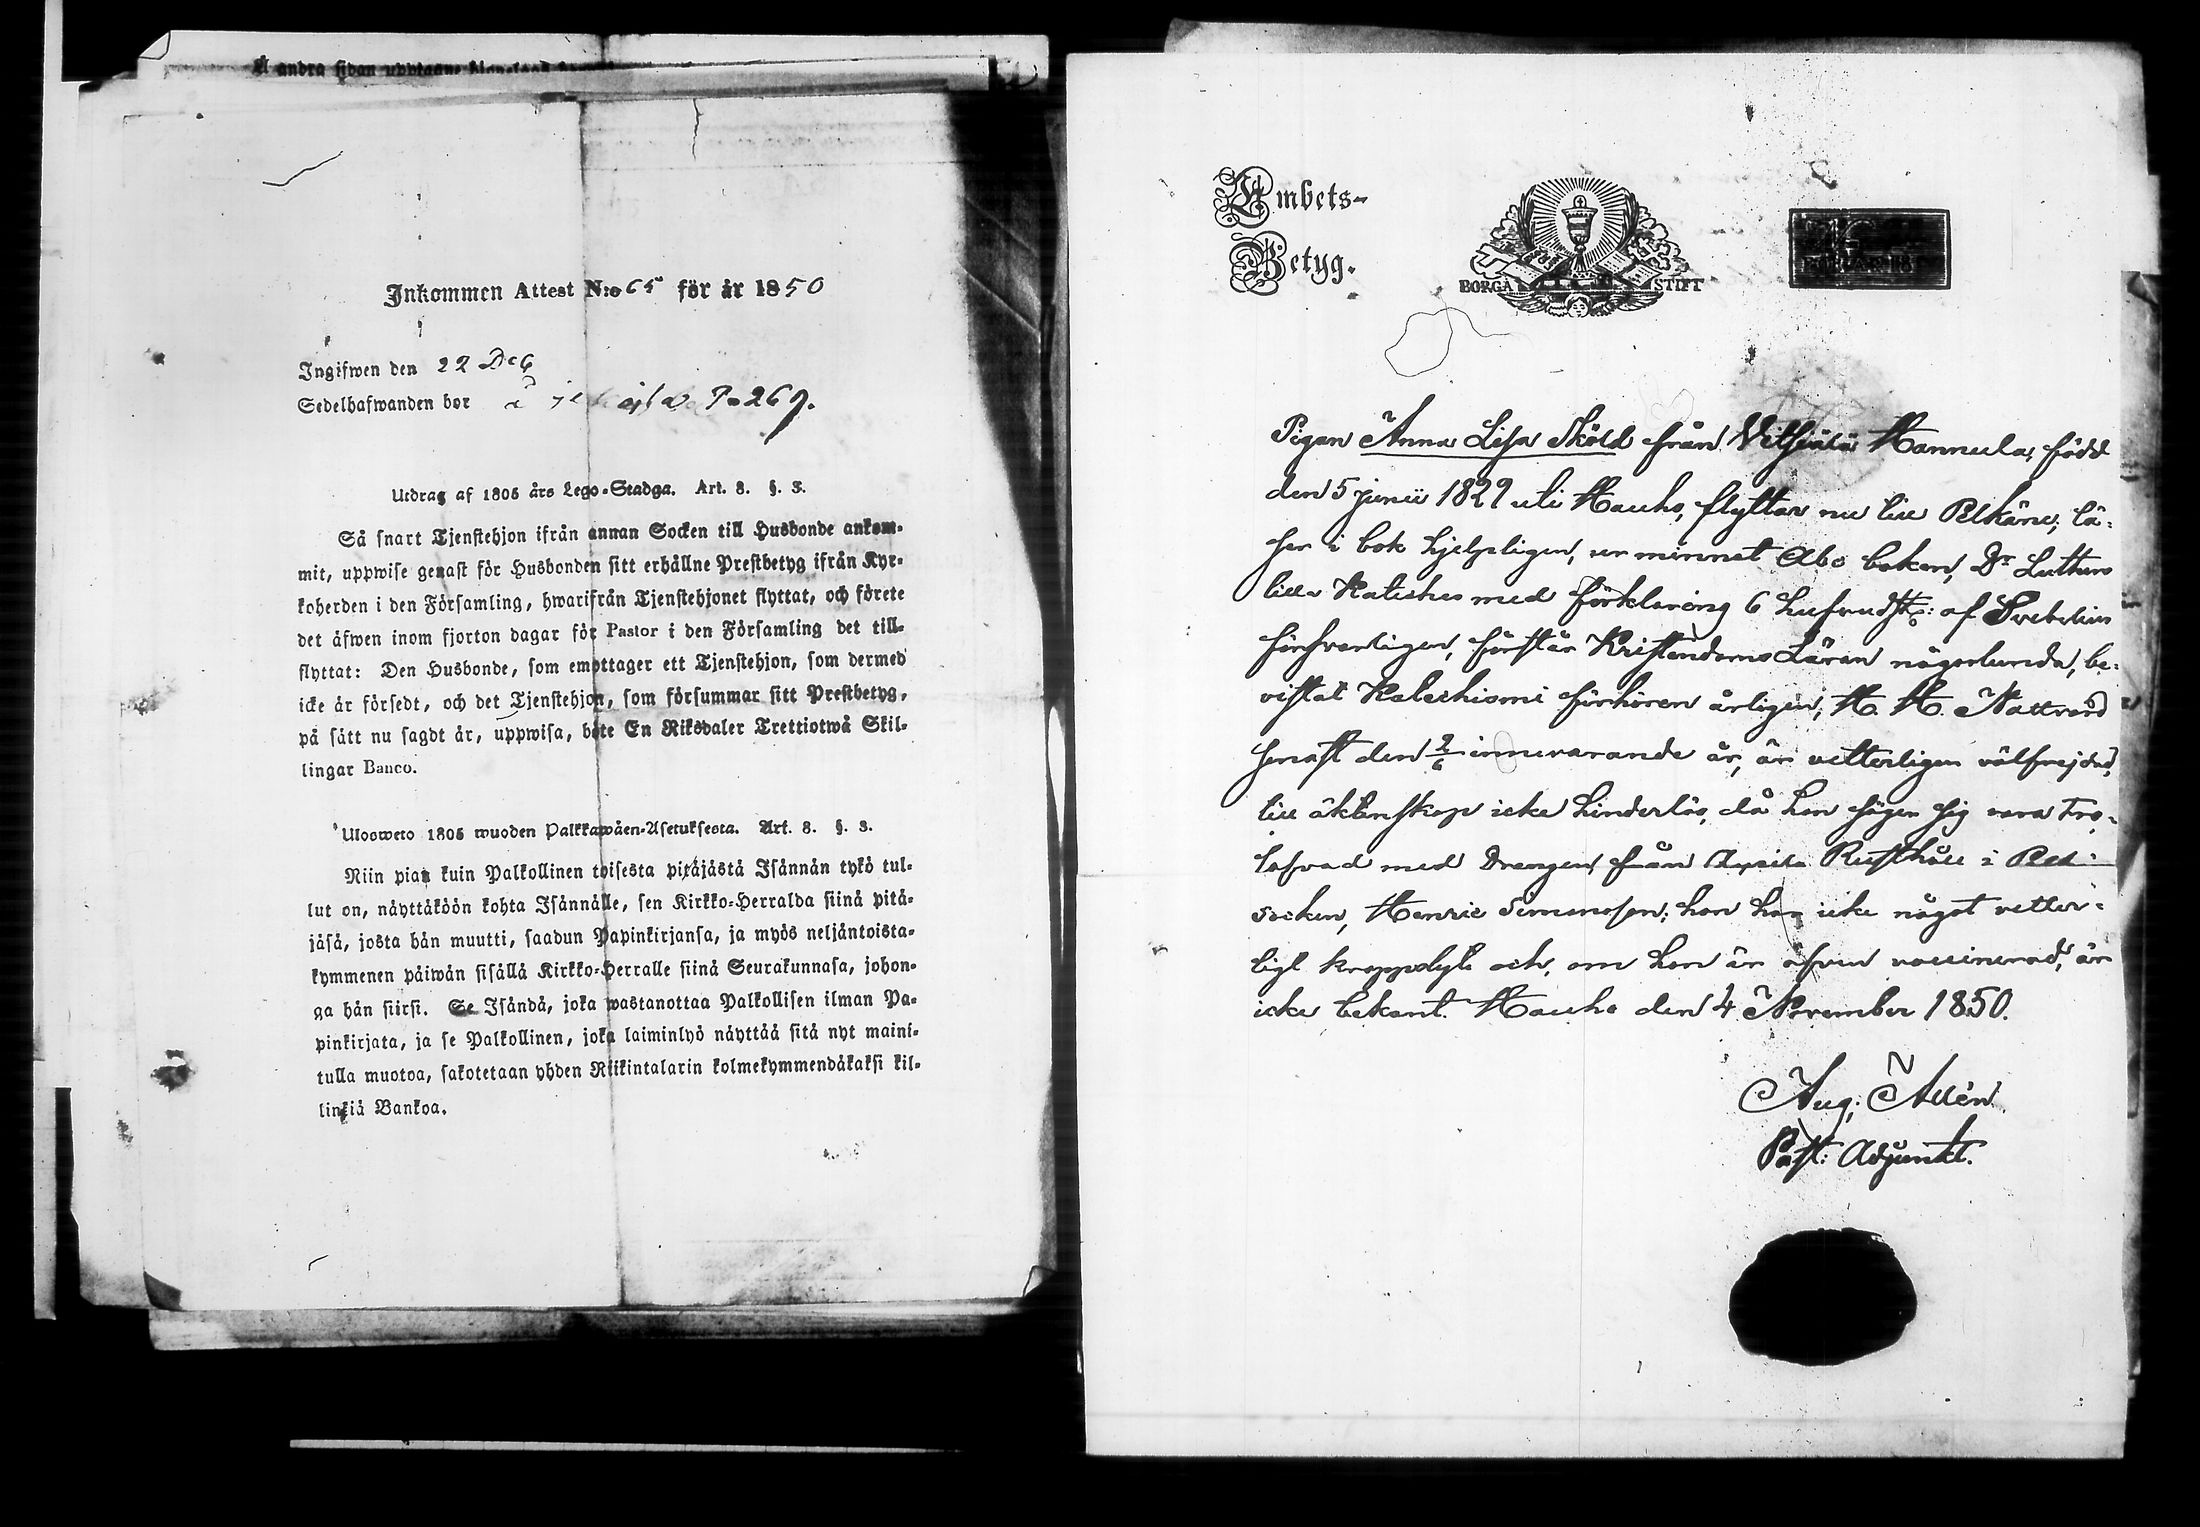 Å andra sidan upptagne
Inkommen Attest N:o 65 för år 1850
Ingifwen den 22 Dec
Sedelhafwanden bor P. 269.
Utdrag af 1805 års Lego-Stadga. Art. 8. §. 3.
Så snart Tjenstehjon ifrån annan Socken till Husbonde ankom-
mit, uppwise genast för Husbonden sitt erhållne Prestbetyg ifrån Kyr-
koherden i den Församling, hwarifrån Tjenstehjonet flyttat, och förete
det äfwen inom fjorton dagar för Pastor i den Församling det till-
flyttat: Den Husbonde, som emottager ett Tjenstehjon, som dermed
icke är försedt, och det Tjenstehjon, som försummar sitt Prestbetyg,
på sätt nu sagdt är, uppwisa, böte En Riksdaler Trettiotwå Skil-
lingar Banco.
Uloosweto 1805 wuoden Palkkawäen-Asetuksesta. Art. 8. §. 3.
Niin pian kuin Palkollinen toisesta pitäjästä Isännän tykö tul-
lut on, näyttäköön kohta Isännälle, sen Kirkko-Herralda siinä pitä-
jäsä, josta hän muutti, saadun Papinkirjansa, ja myös neljäntoista-
kymmenen päiwän sisällä Kirkko-Herralle siinä Seurakunnasa, johon-
ga hän siirsi. Se Isändä, joka wastanottaa Palkollisen ilman Pa-
pinkirjata, ja se Palkollinen, joka laiminlyö näyttää sitä nyt maini-
tulla muotoa, sakotetaan yhden Riikintalarin kolmekymmendäkaksi kil-
linkiä Bankoa.
Embets-
Betyg.
BORGÅ STIFT
Pigan Anna Lisa Sköld från Vitsiälä Hannula, född
den 5 junii 1829 uti Hauho, flyttar nu till Pelkäne; lä-
ser i bok hjelpligen, ur minnet Abc boken, Dr Luthers
lilla Kateches med förklaring 6 hufvudst: af Svebelius
försvarligen, förstår Kristendoms Läran någorlunda, be-
vistat Katechismi förhören årligen, H. H. Nattvard
senast den 2/6 innevarande år, är vetterligen välfrejdad,
till äktenskap icke hinderlös, då hon säger sig vara tro-
lofvad med Drengen från Rusthåll i Pel-
socken, Henric Simonsson; hon har icke något vetter-
ligt kroppslyte och, om hon är äfven vaccinerad, är
icke bekant. Hauho den 4 November 1850.
Aug: Allén
Past: Adjunkt.